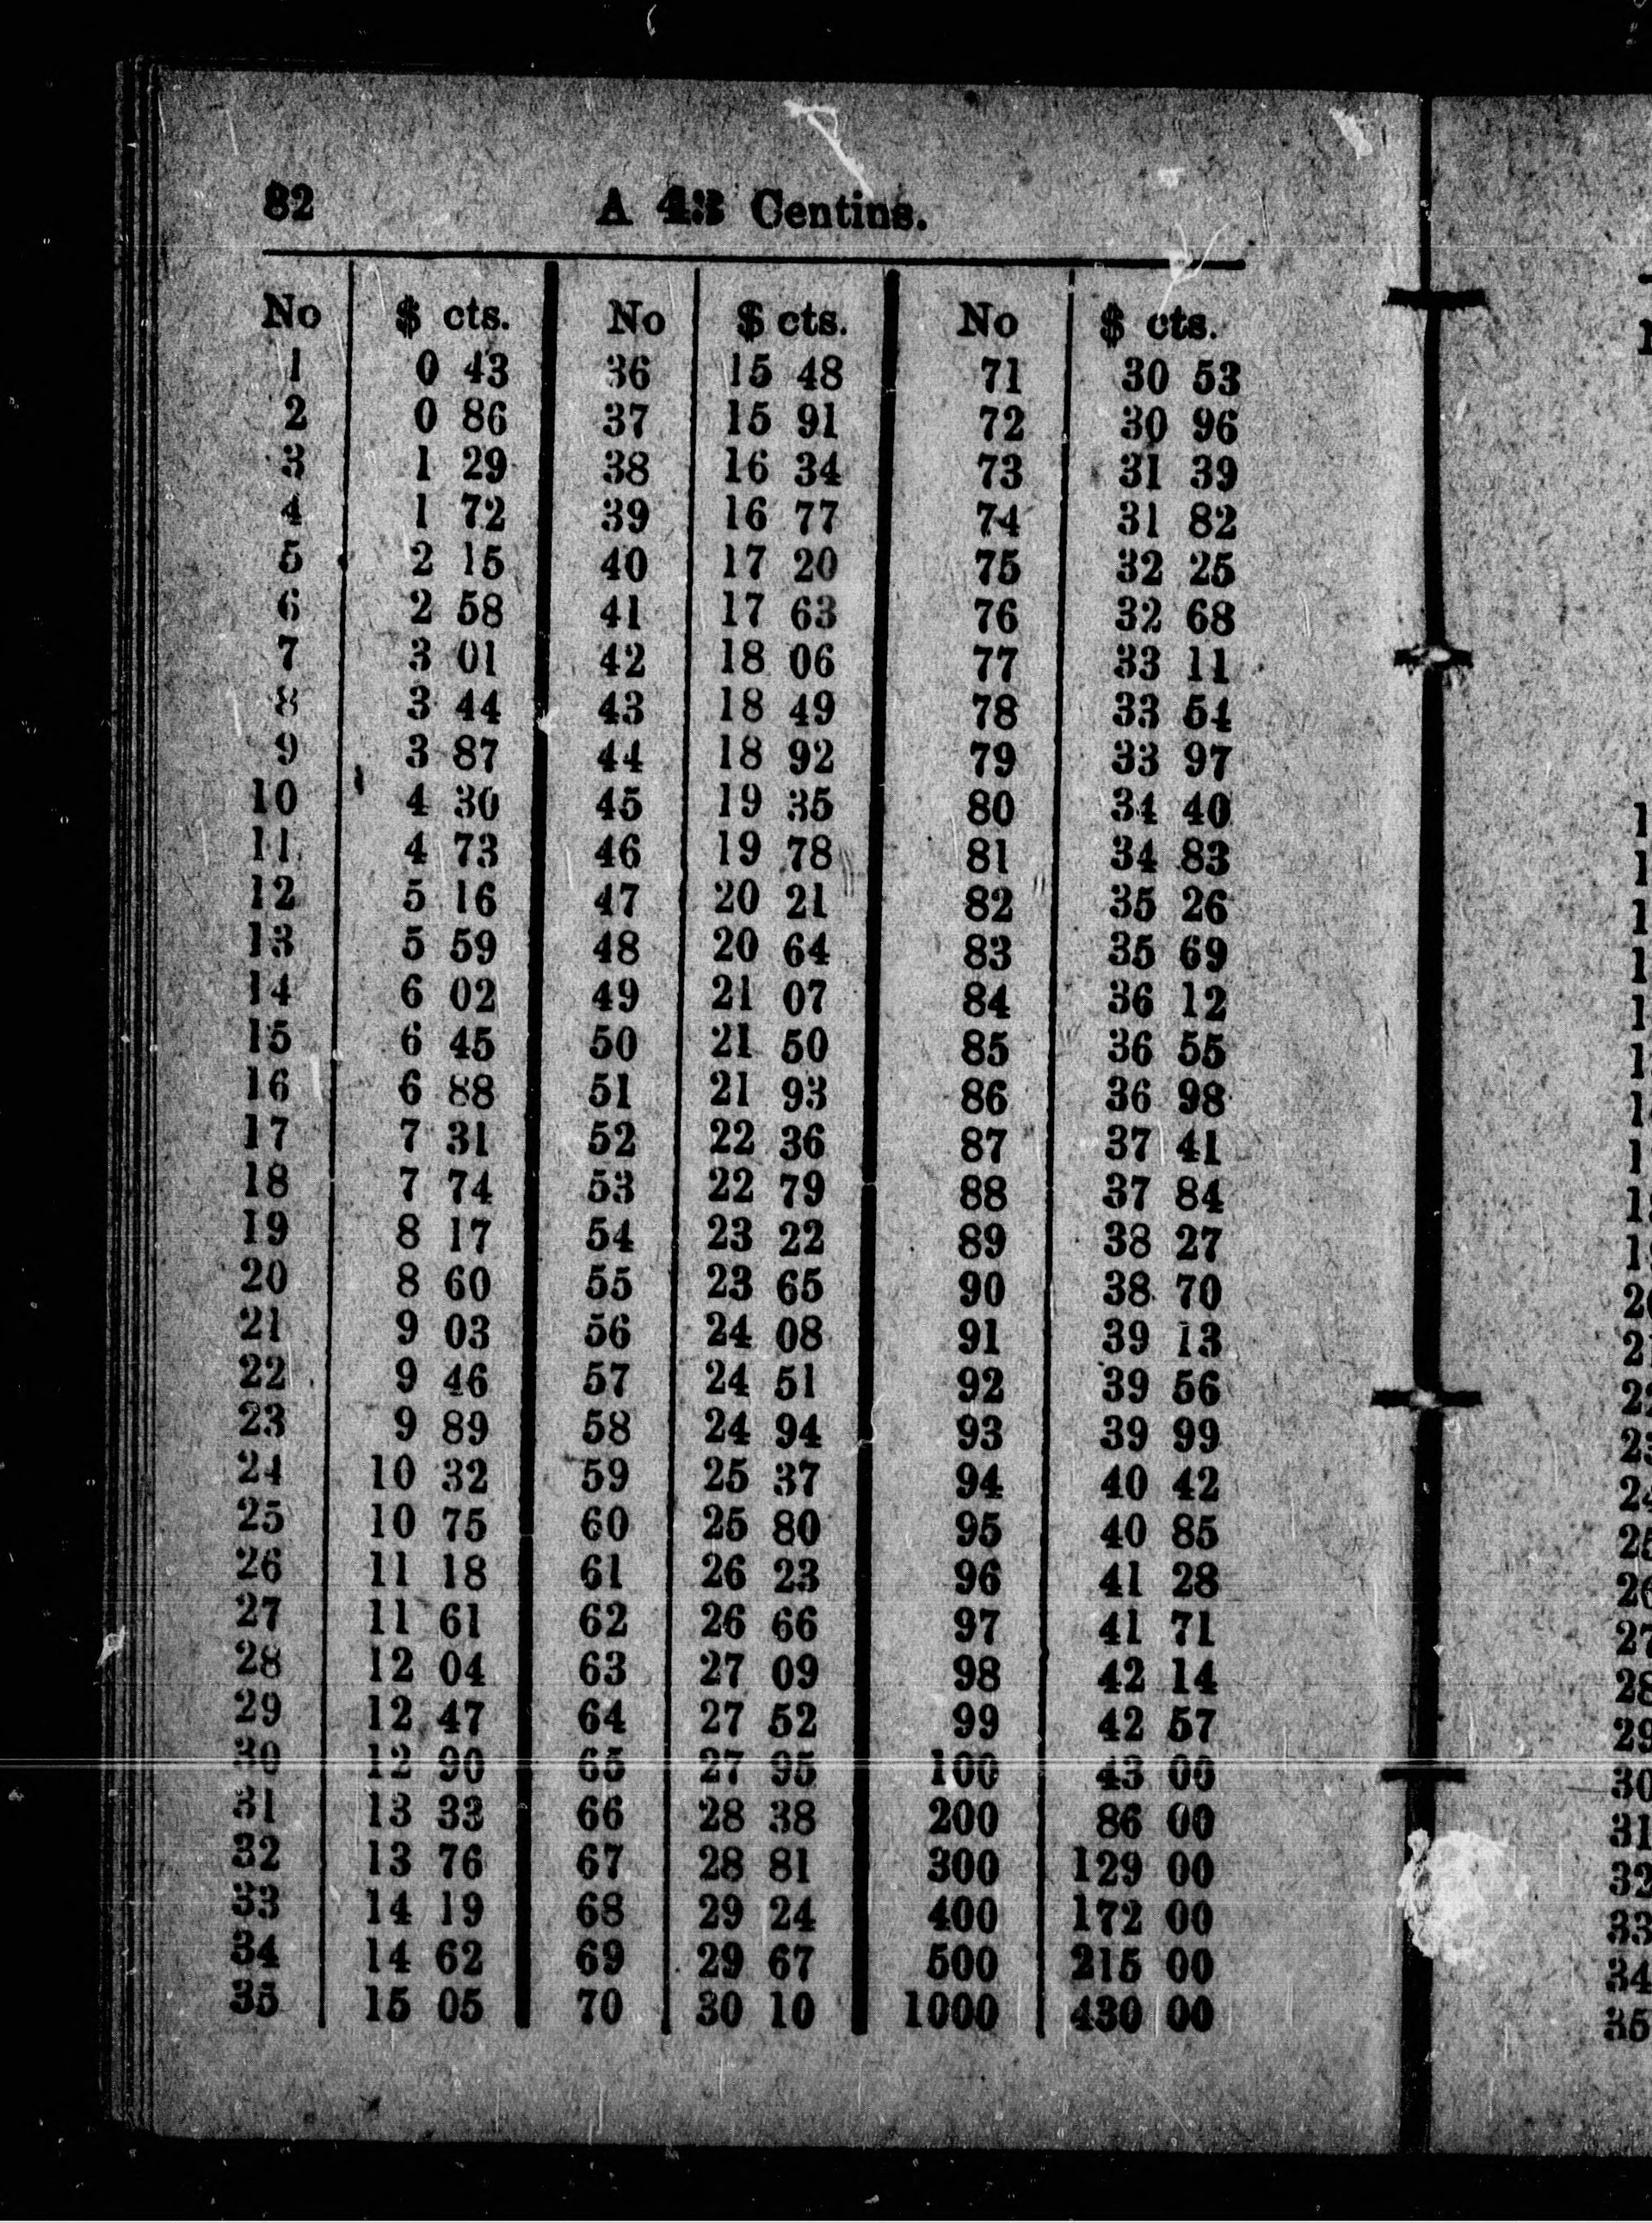 82 A 43 Centins.
No $ cts. No $ cts. No $ cts.
1 0 43 36 15 48 71 30 53
2 0 86 37 15 91 72 30 96
3 1 29 38 16 34 73 31 39
4 1 72 39 16 77 74 31 82
5 2 15 40 17 20 75 32 25
6 2 58 41 17 63 76 32 68
7 3 01 42 18 06 77 33 11
8 3 44 43 18 49 78 33 54
9 3 87 44 18 92 79 33 97
10 4 30 45 19 35 80 34 40
11 4 73 46 19 78 81 34 83
12 5 16 47 20 21 82 35 26
13 5 59 48 20 64 83 35 69
14 6 02 49 21 07 84 36 12
15 6 45 50 21 50 85 36 55
16 6 88 51 21 93 86 36 98
17 7 31 52 22 36 87 37 41
18 7 74 53 22 79 88 37 84
19 8 17 54 23 22 89 38 27
20 8 60 55 23 65 90 38 70
21 9 03 56 24 08 91 39 13
22 9 46 57 24 51 92 39 56
23 9 89 58 24 94 93 39 99
24 10 32 59 25 37 94 40 42
25 10 75 60 25 80 95 40 85
26 11 18 61 26 23 96 41 28
27 11 61 62 26 66 97 41 71
28 12 04 63 27 09 98 42 14
29 12 47 64 27 52 99 42 57
30 12 90 65 27 95 100 43 00
31 13 33 66 28 38 200 86 00
32 13 76 67 28 81 300 129 00
33 14 19 68 29 24 400 172 00
34 14 62 69 29 67 500 215 00
35 15 05 70 30 10 1000 430 00